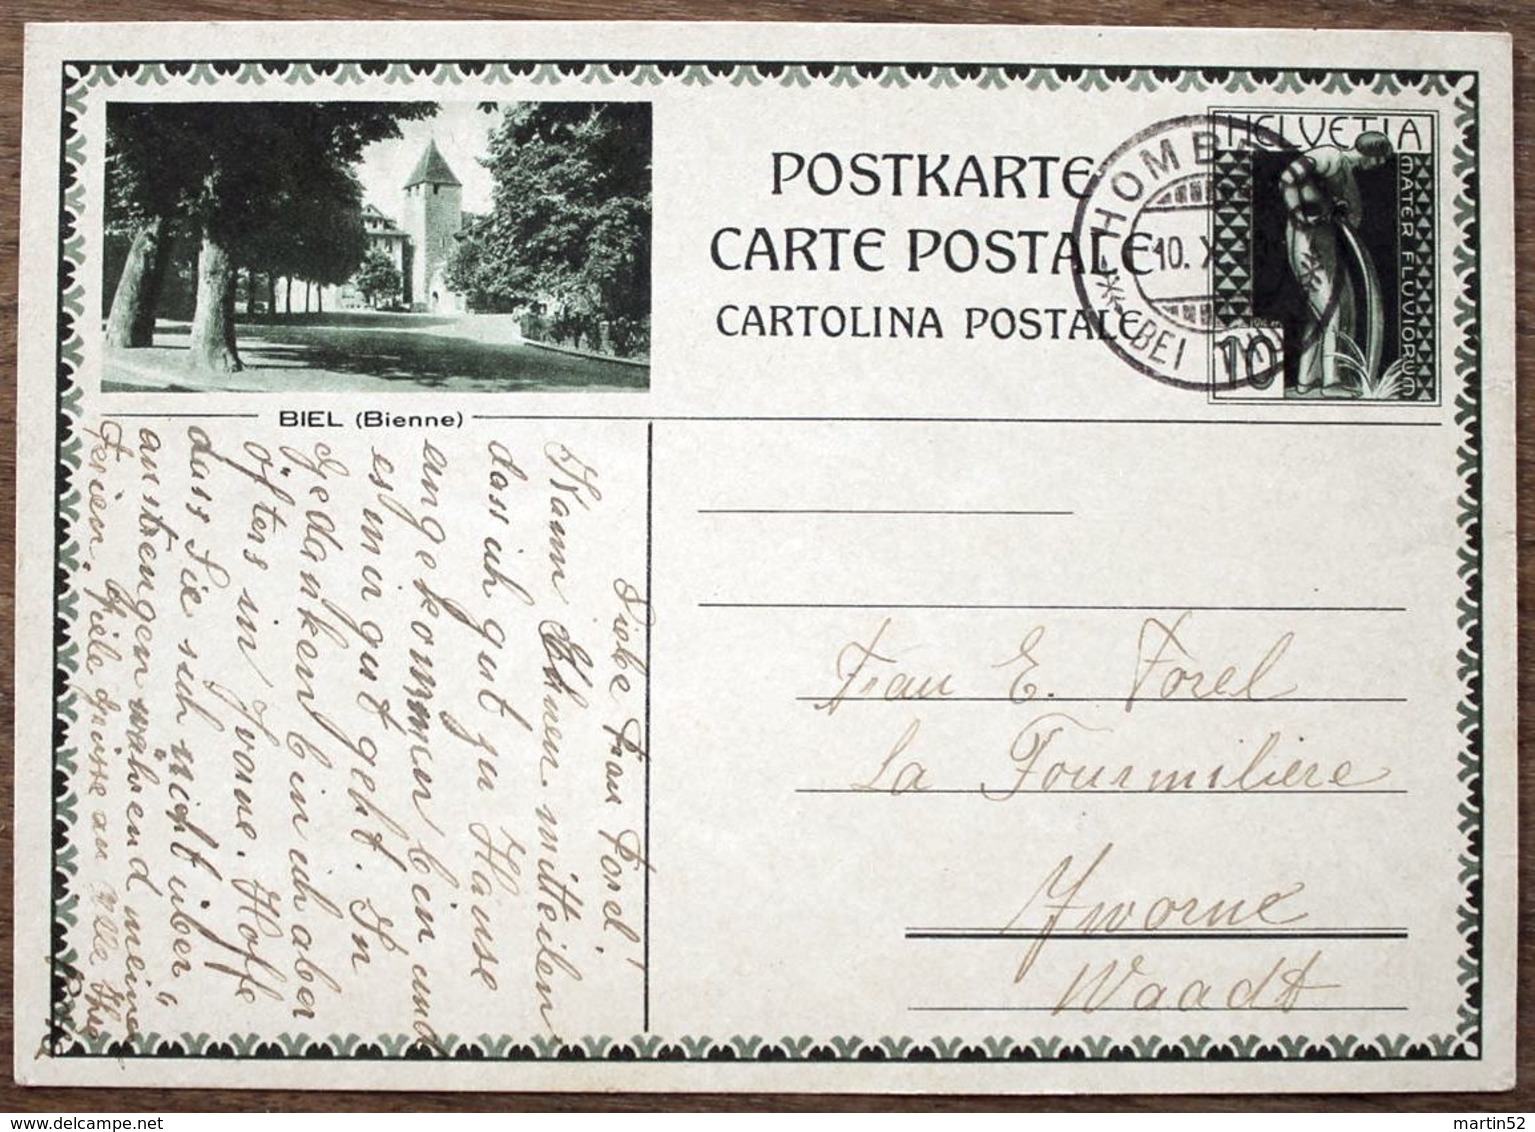 POSTKARTE
CARTE POSTALE
CARTOLINA POSTALE
HELVETIA
MATER FLUVIORUM
10
HOMB
10. X
BEI
BIEL (Bienne)
Liebe Frau Forel!
Kann Ihnen mitteilen
dass ich gut zu Hause
angekommen bin, und
es mir gut geht. In
Gedanken bin ich aber
öfters in Yvorne. Hoffe
dass Sie sich nicht über„
anstrengen während meiner
Ferien. Viele Grüsse an Alle Ihre
Frau E. Forel
La Fourmiliere
Yvorne
Waadt
www.delcampe.net
martin52